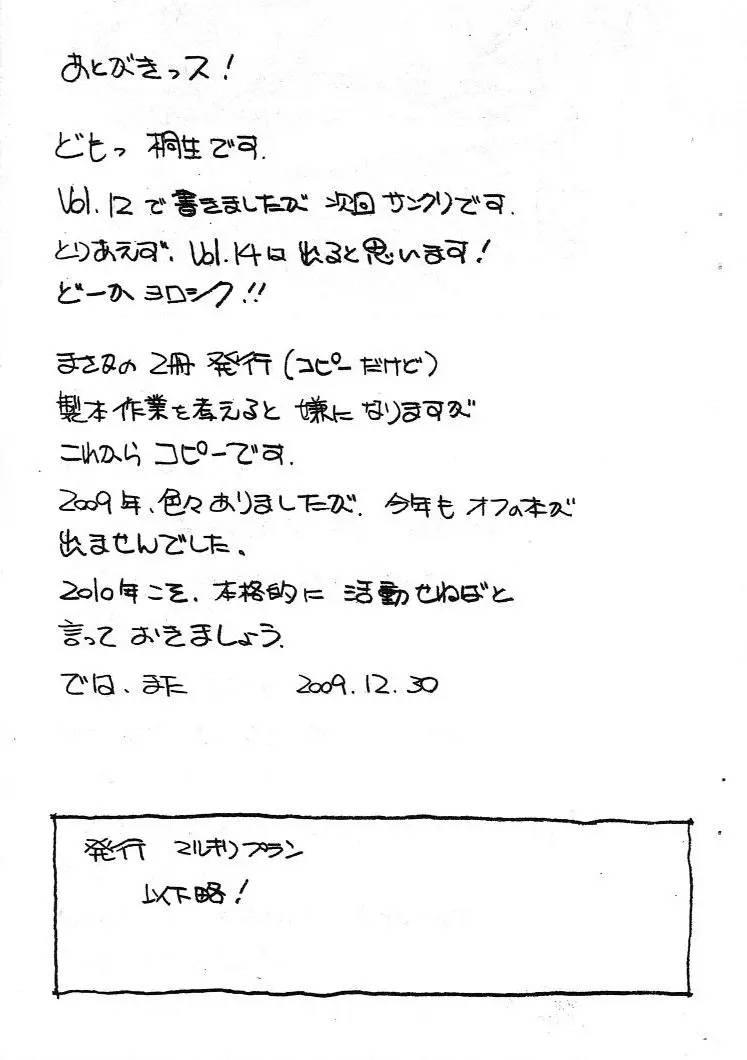 あとがきっス!
どもっ 桐生です.
Vol.12で書きましたが 次回サンクリです.
とりあえず、Vol.14は出ると思います!
どーか ヨロシク!!
まさかの 2冊 発行(コピーだけど)
製本作業を考えると 嫌になりますが
これからコピーです.
2009年、色々ありましたが. 今年も オフの本が
出ませんでした、
2010年こそ、本格的に 活動せねばと
言って おきましょう.
では、また 2009.12.30
発行 マルキリプラン
以下略!